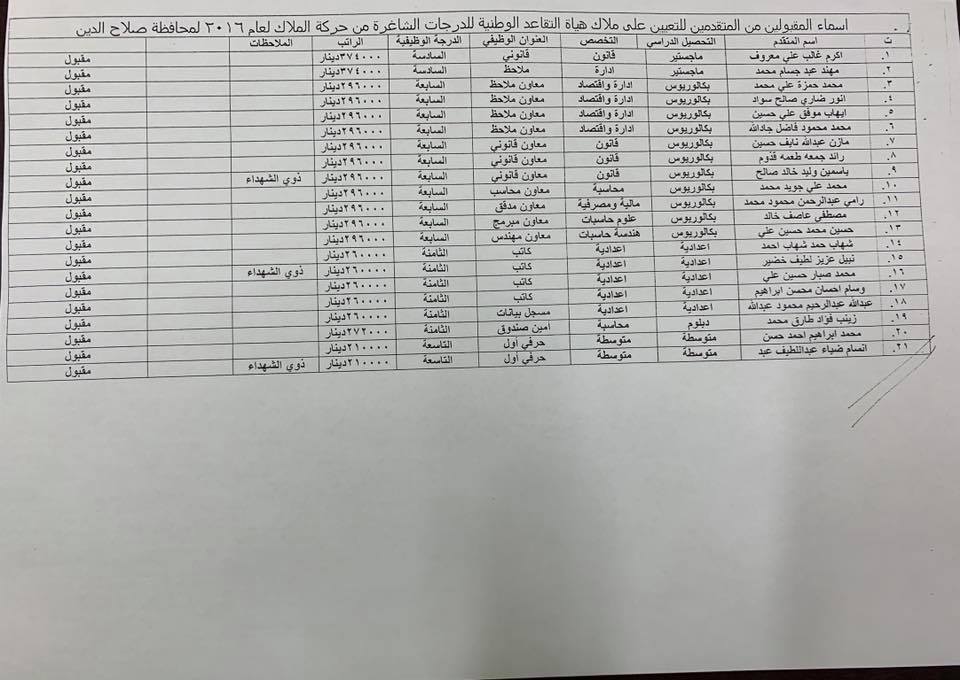 اسماء المقبولين من المتقدمين للتعيين على ملاك هيأة التقاعد الوطنية للدرجات الشاغرة من حركة الملاك لعام ٢٠١٦ لمحافظة صلاح الدين
ت اسم المتقدم التحصيل الدراسي التخصص العنوان الوظيفي الدرجة الوظيفية الراتب الملاحظات
١. اكرم غالب علي معروف ماجستير قانون قانوني السادسة ٣٧٤٠٠٠دينار مقبول
٢. مهند عبد جسام محمد ماجستير ادارة ملاحظ السادسة ٣٧٤٠٠٠دينار مقبول
٣. محمد حمزة علي محمد بكالوريوس ادارة واقتصاد معاون ملاحظ السابعة ٢٩٦٠٠٠دينار مقبول
٤. انور ضاري صالح سواد بكالوريوس ادارة واقتصاد معاون ملاحظ السابعة ٢٩٦٠٠٠دينار مقبول
٥. ايهاب موفق علي حسين بكالوريوس ادارة واقتصاد معاون ملاحظ السابعة ٢٩٦٠٠٠دينار مقبول
٦. محمد محمود فاضل جادالله بكالوريوس ادارة واقتصاد معاون ملاحظ السابعة ٢٩٦٠٠٠دينار مقبول
٧. مازن عبدالله نايف حسين بكالوريوس قانون معاون قانوني السابعة ٢٩٦٠٠٠دينار مقبول
٨. رائد جمعه طعمه قدوم بكالوريوس قانون معاون قانوني السابعة ٢٩٦٠٠٠دينار مقبول
٩. ياسمين وليد خالد صالح بكالوريوس قانون معاون قانوني السابعة ٢٩٦٠٠٠دينار ذوي الشهداء مقبول
١٠. محمد علي جويد محمد بكالوريوس محاسبة معاون محاسب السابعة ٢٩٦٠٠٠دينار مقبول
١١. رامي عبدالرحمن محمود محمد بكالوريوس مالية ومصرفية معاون مدقق السابعة ٢٩٦٠٠٠دينار مقبول
١٢. مصطفى عاصف خالد بكالوريوس علوم حاسبات معاون مبرمج السابعة ٢٩٦٠٠٠دينار مقبول
١٣. حسين محمد حسين علي بكالوريوس هندسة حاسبات معاون مهندس السابعة ٢٩٦٠٠٠دينار مقبول
١٤. شهاب حمد شهاب احمد اعدادية اعدادية كاتب الثامنة ٢٦٠٠٠٠دينار مقبول
١٥. نبيل عزيز لطيف خضير اعدادية اعدادية كاتب الثامنة ٢٦٠٠٠٠دينار ذوي الشهداء مقبول
١٦. محمد صبار حسين علي اعدادية اعدادية كاتب الثامنة ٢٦٠٠٠٠دينار مقبول
١٧. وسام احسان محسن ابراهيم اعدادية اعدادية كاتب الثامنة ٢٦٠٠٠٠دينار مقبول
١٨. عبدالله عبدالرحيم محمود عبدالله اعدادية اعدادية مسجل بيانات الثامنة ٢٦٠٠٠٠دينار مقبول
١٩. زينب فؤاد طارق محمد دبلوم محاسبة امين صندوق الثامنة ٢٧٢٠٠٠دينار مقبول
٢٠. محمد ابراهيم احمد حسن متوسطة متوسطة حرفي اول التاسعة ٢١٠٠٠٠دينار مقبول
٢١. انسام ضياء عبداللطيف عبد متوسطة متوسطة حرفي اول التاسعة ٢١٠٠٠٠دينار ذوي الشهداء مقبول